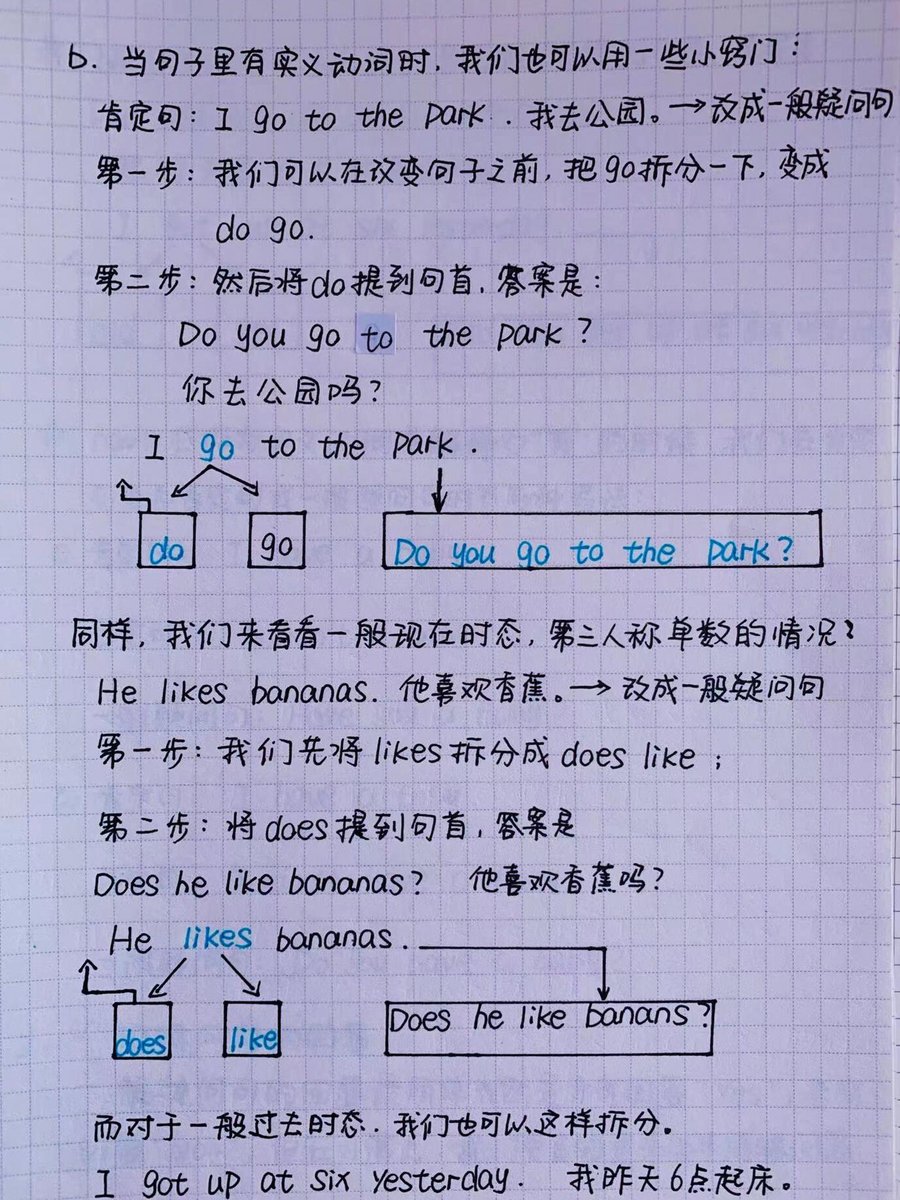 b. 当句子里有实义动词时,我们也可以用一些小窍门:
肯定句: I go to the park. 我去公园。→改成一般疑问句
第一步: 我们可以在改变句子之前,把go拆分一下,变成
do go.
第二步: 然后将do提到句首,答案是:
Do you go to the park?
你去公园吗?
I go to the park.
do go Do you go to the park?
同样,我们来看看一般现在时态,第三人称单数的情况?
He likes bananas. 他喜欢香蕉。→ 改成一般疑问句
第一步: 我们先将likes拆分成does like;
第二步: 将does提到句首,答案是
Does he like bananas? 他喜欢香蕉吗?
He likes bananas.
does like Does he like banans?
而对于一般过去时态.我们也可以这样拆分。
I got up at six yesterday. 我昨天6点起床。